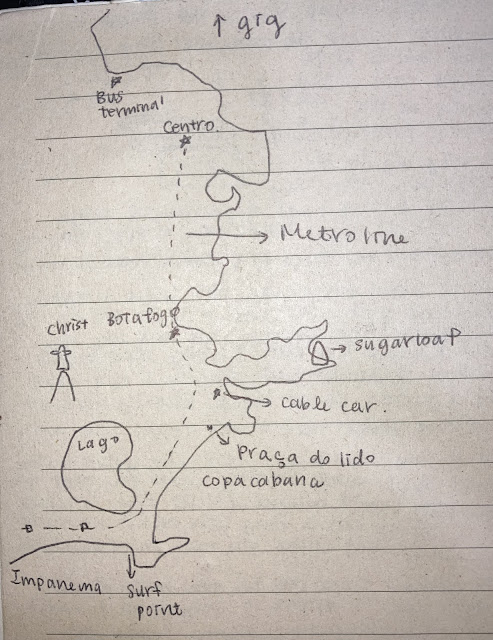 ↑ gig
Bus
terminal
Centro
Metroline
Botafogo
Christ
sugarloaf
cable car.
Lago
Praça do lido
copacabana
Impanema
surf
point